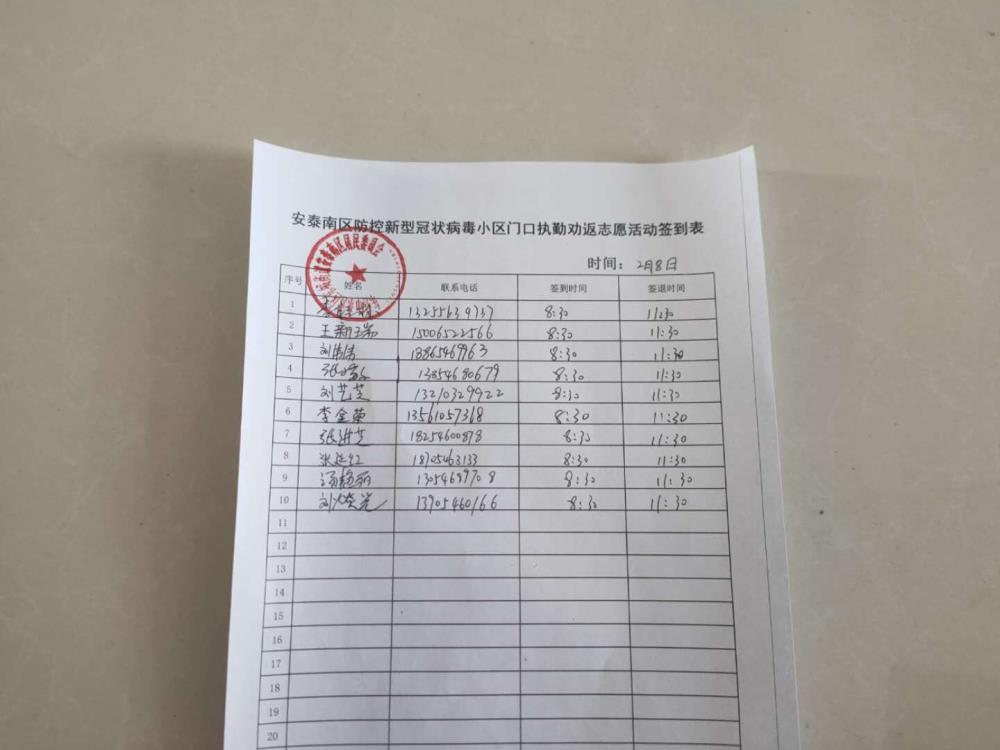 安泰南区防控新型冠状病毒小区门口执勤劝返志愿活动签到表
时间：2月8日
序号 姓名 联系电话 签到时间 签退时间
1 13255639737 8:30 11:30
2 王新瑞 15006522566 8:30 11:30
3 刘伟伟 18865469963 8:30 11:30
4 13854680679 8:30 11:30
5 刘艺芝 13210329922 8:30 11:30
6 李金荣 13561057368 8:30 11:30
7 张进芝 18254600878 8:30 11:30
8 张廷红 18705463133 8:30 11:30
9 汤艳丽 13054699708 8:30 11:30
10 刘荣光 13905460166 8:30 11:30
11
12
13
14
15
16
17
18
19
20